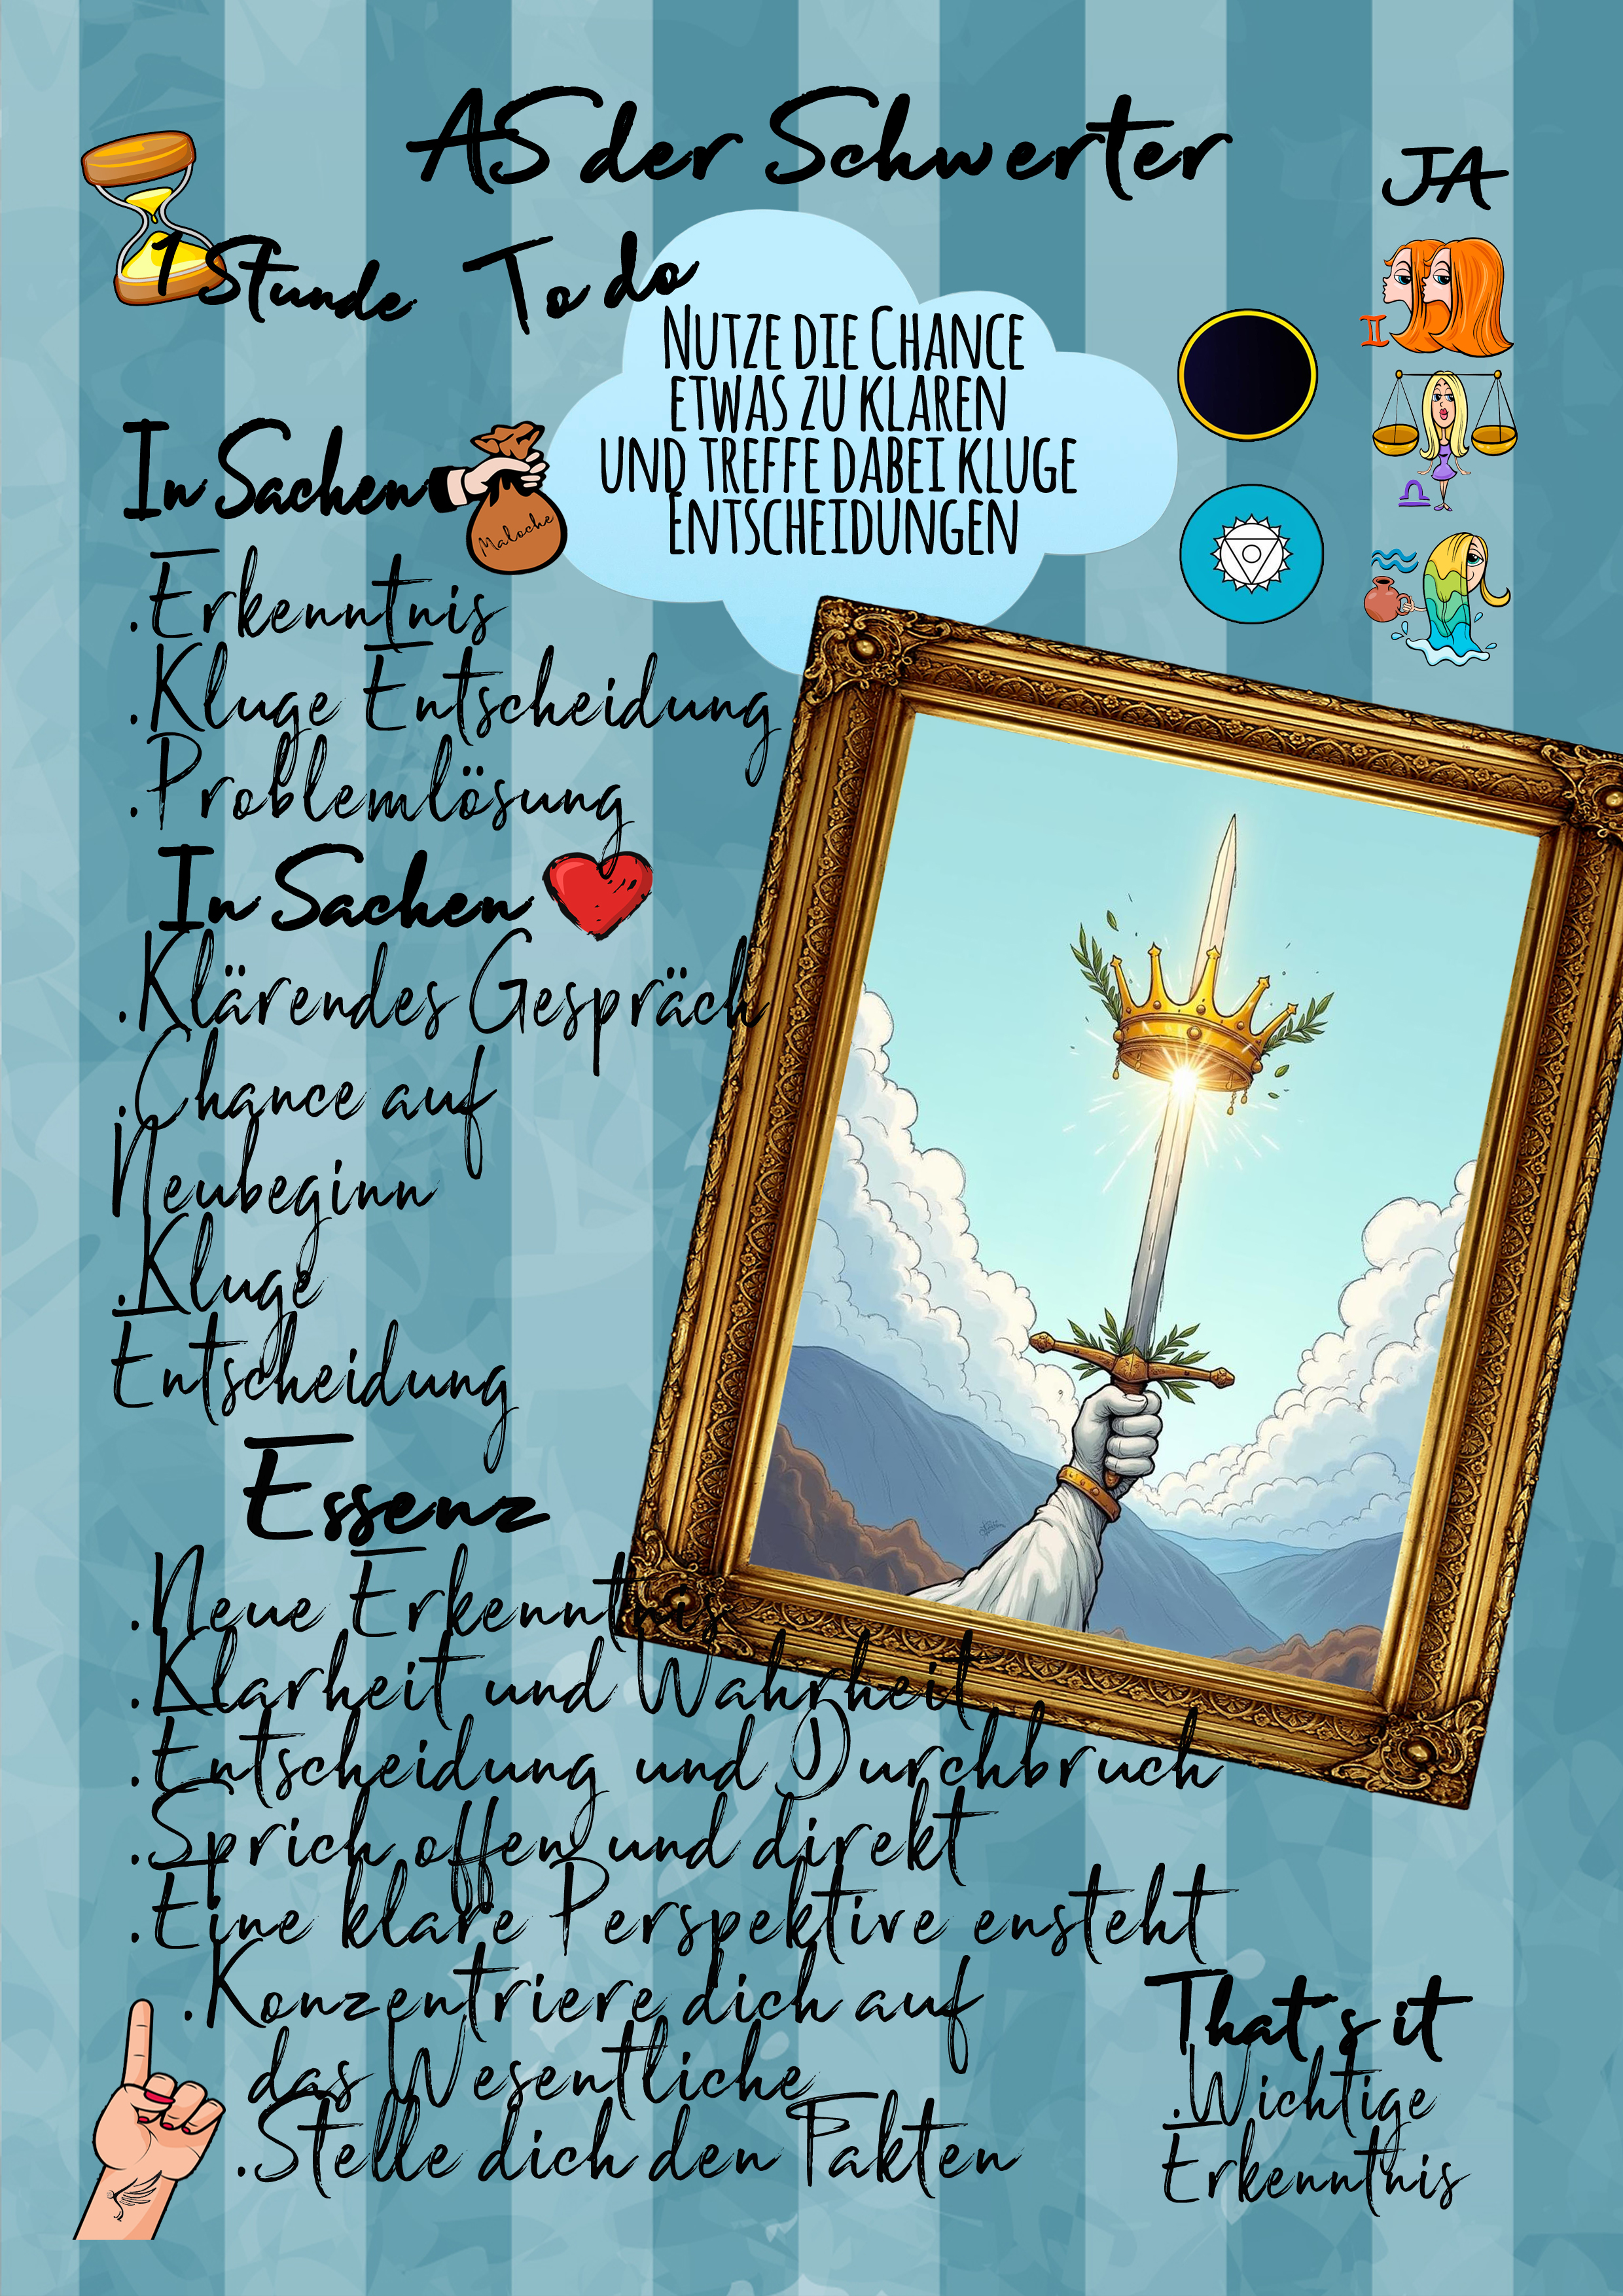 AS der Schwerter
JA
1 Stunde
To do
Nutze die Chance
etwas zu klären
und treffe dabei kluge
Entscheidungen
In Sachen
Maloche
.Erkenntnis
.Kluge Entscheidung
.Problemlösung
In Sachen
.Klärendes Gespräch
.Chance auf
Neubeginn
.Kluge
Entscheidung
Essenz
.Neue Erkenntnis
.Klarheit und Wahrheit
.Entscheidung und Durchbruch
.Sprich offen und direkt
.Eine klare Perspektive ensteht
.Konzentriere dich auf
das Wesentliche
.Stelle dich den Fakten
That´s it
.Wichtige
Erkenntnis